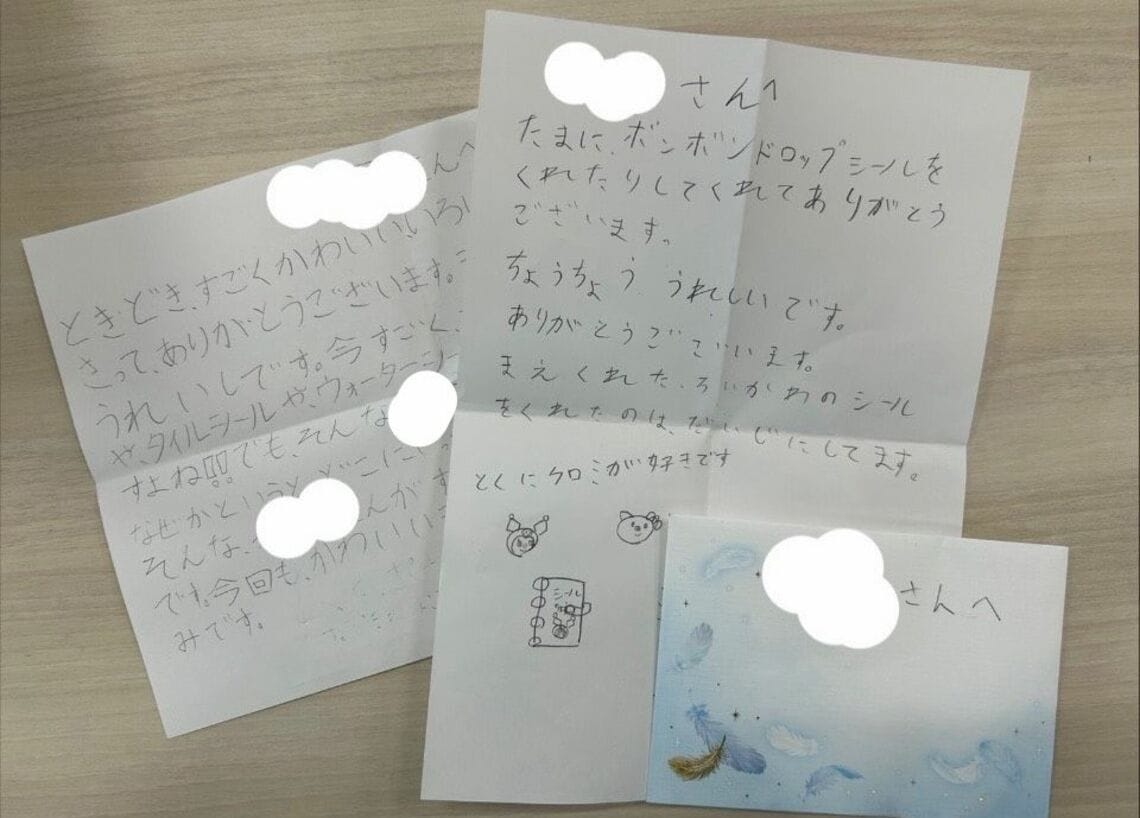 さんへ
ときどき、すごくかわいい、いろ
さって、ありがとうございます。
うれいしです。今すごく、
や、タイルシールや、ウォーターシー
すよね!!でも、そんな
なぜかというと、どこに
そんな、 んがす
です。今回も、かわいい
みです。
さんへ
たまに、ボンボンドロップシールを
くれたりしてくれてありがとう
ございます。
ちょうちょう うれしいです。
ありがとうございます。
まえくれた、ろいかわのシール
をくれたのは、だいじにしてます。
とくにクロミが好きです
シール
さんへ